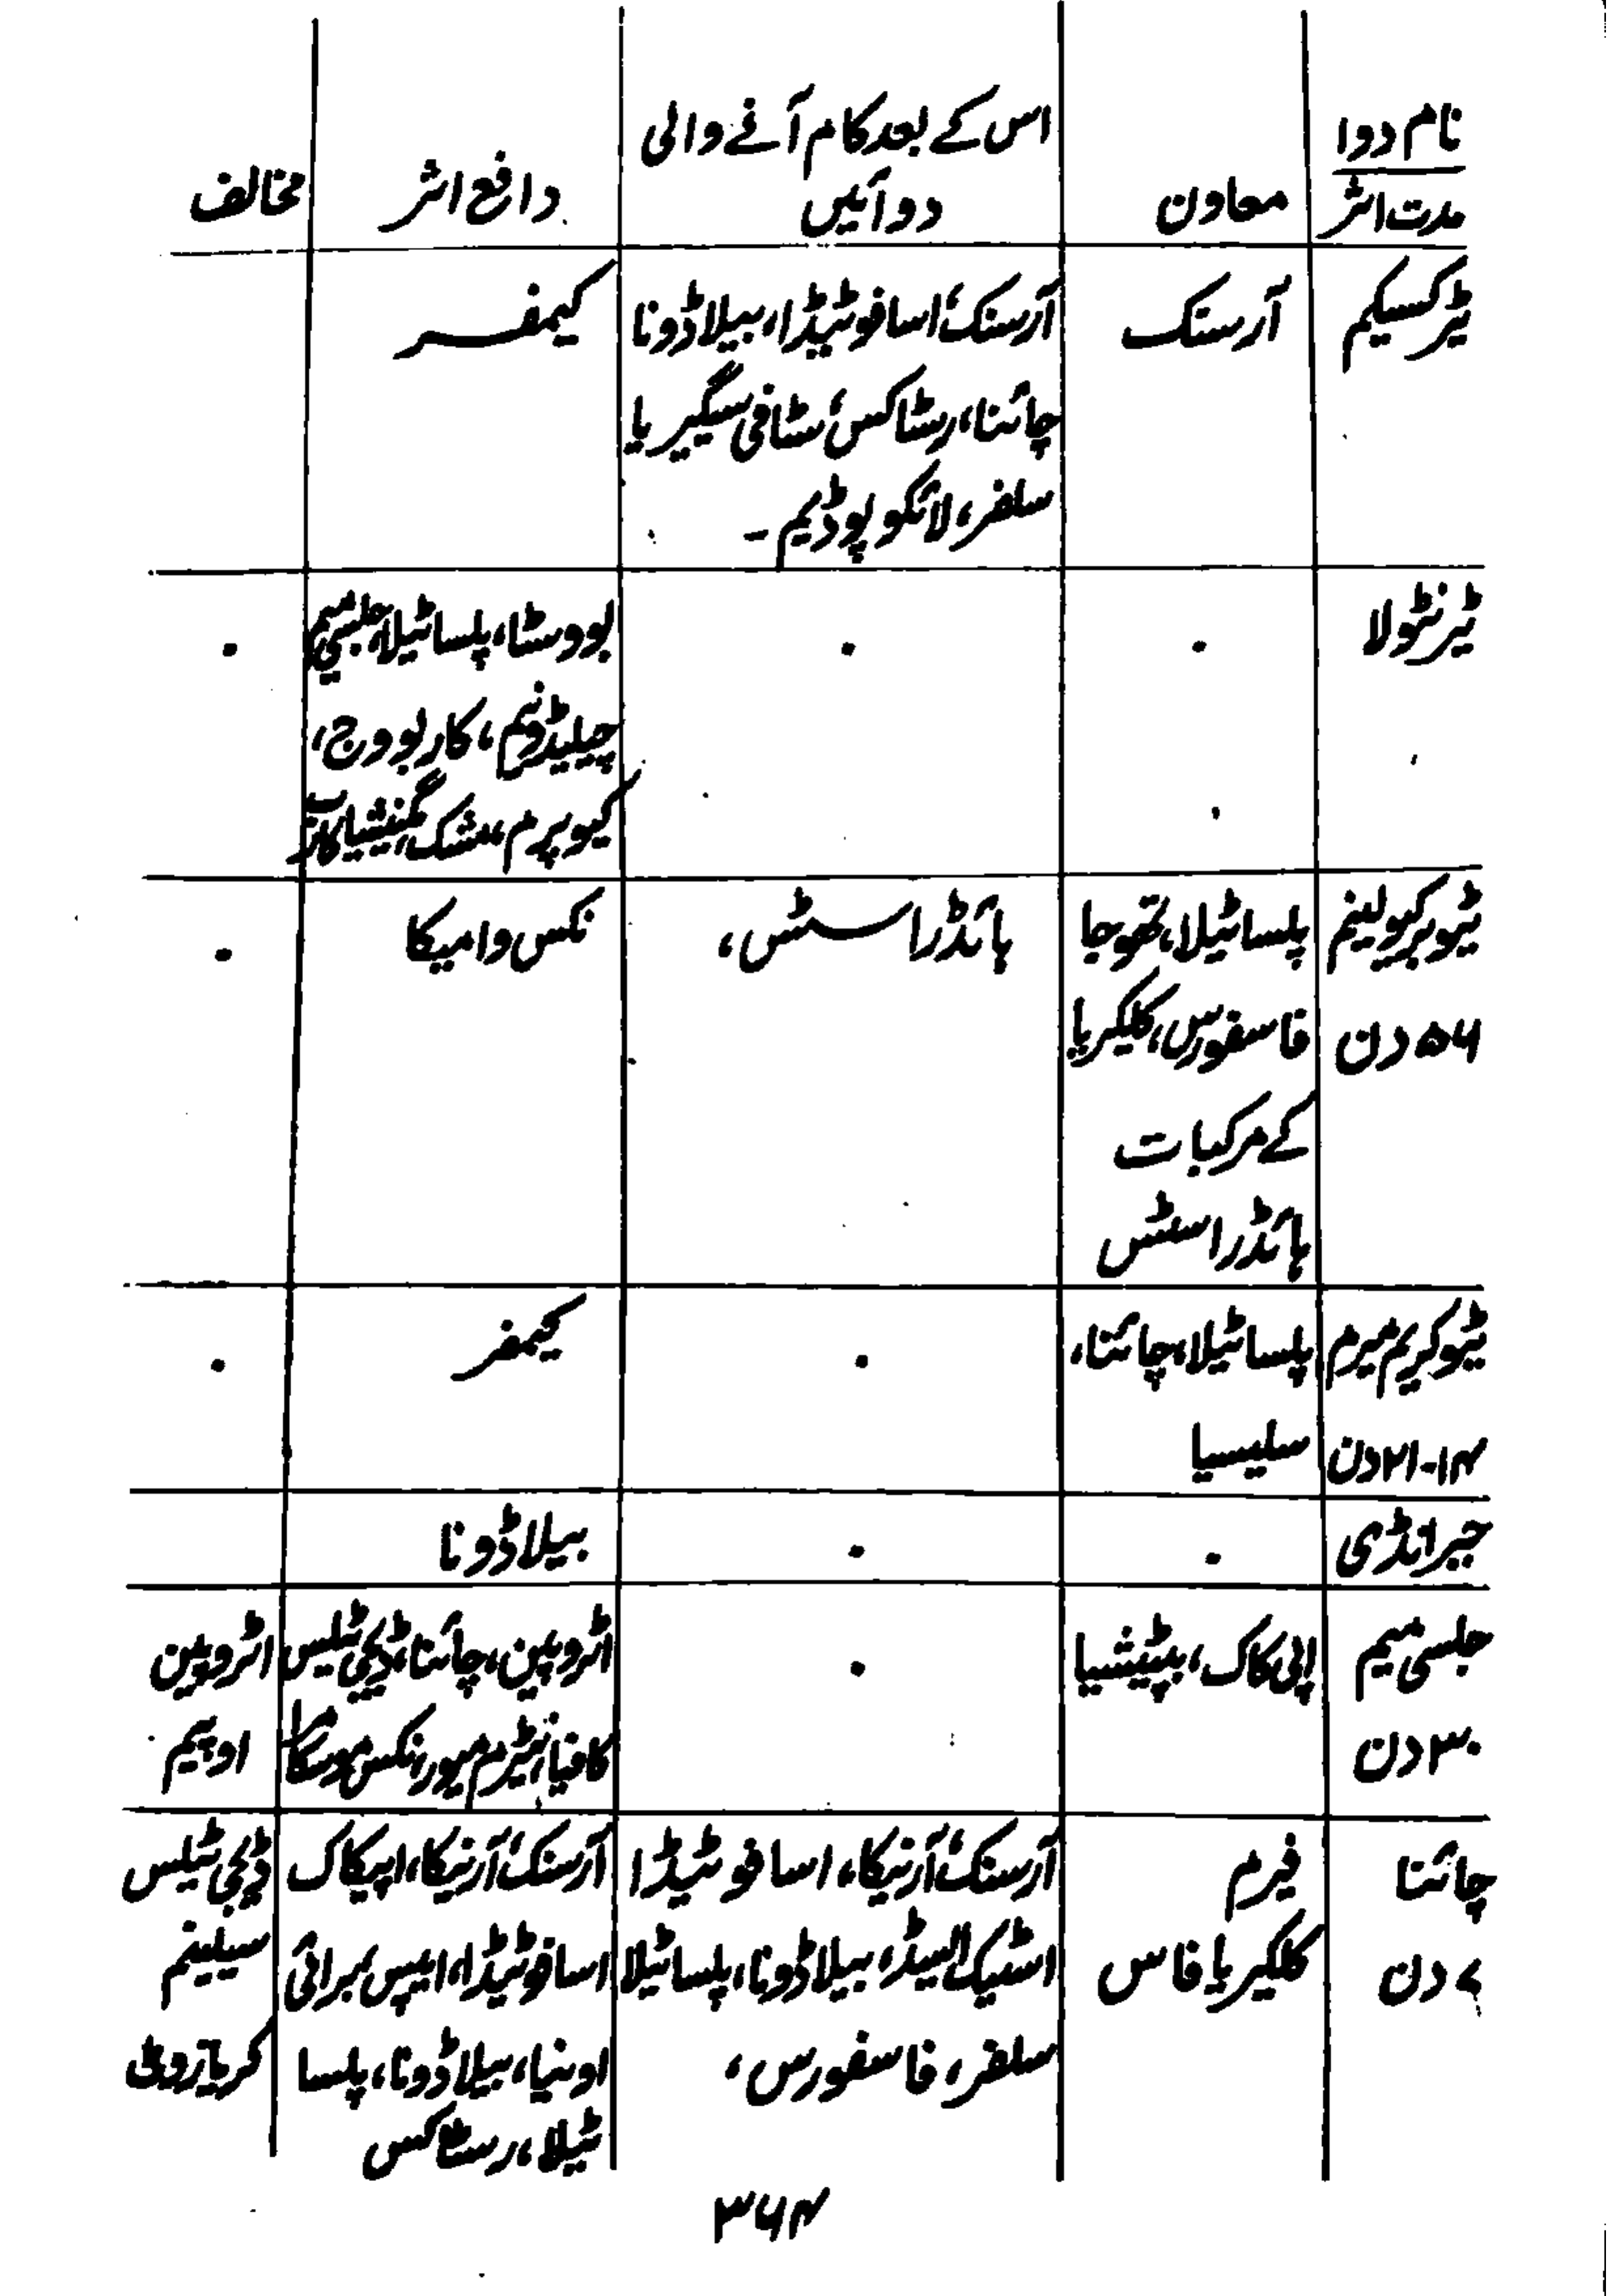 نام دوا
مدت اثر
معاون
اس کے بعد کام آنے والی
دوائیں
دافع اثر
مخالف
ٹیرکسیکم
آرسنک
آرسنک، اسافوٹیڈا، بیلاڈونا
چائنا، رسٹاکس، سٹافی سیگیریا
سلفر، لائکوپوڈیم۔
کیمفر
ٹیرنٹولا
.
.
بووسٹا، پلساٹیلا، جلسی میم
چیلیڈونیم، کاربووج،
کیوپرم، مشک، میگنیشیا کارب
.
ٹیوبرکیولینم
۵۶ دن
پلساٹیلا، تھوجا
فاسفورس، کلکیریا
کے مرکبات
ہائڈراسٹس
ہائڈراسٹس،
نکس وامیکا
.
ٹیوکریم میرم
۱۴-۲۱ دن
پلساٹیلا، چائنا،
سلیسیا
.
کیمفر
.
جبرانڈی
.
.
بیلاڈونا
جلسی میم
۳۰ دن
اپی کاک، بپٹیشیا
.
اٹروپین، چائنا، ڈیجی ٹیلس
کافیا، نیٹرم میور، نکس موسکاٹا
اٹروپین
اوپیم
چائنا
۷ دن
فیرم
کلکیریا فاس
آرسنک، آرنیکا، اسافوٹیڈا
اسٹیک ایسڈ، بیلاڈونا، پلساٹیلا
سلفر، فاسفورس،
آرسنک، آرنیکا، اپیکاک
اسافوٹیڈا، ایپس، برائی
اونیا، بیلاڈونا، پلسا
ٹیلا، رسٹاکس
ڈیجی ٹیلس
سیلینم
کریازوٹ
۳۶۴